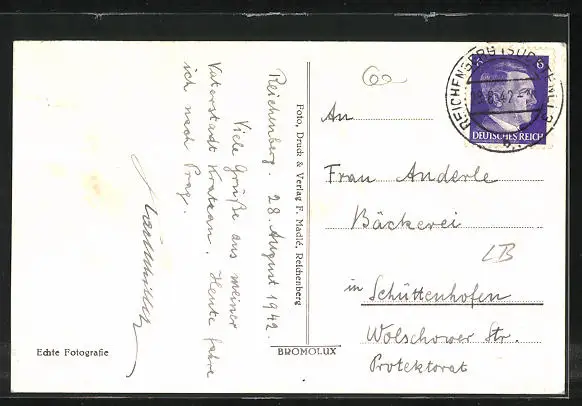 Reichenberg. 28. August 1942.
Viele Grüße aus meiner
Vaterstadt Kratzau. Heute fahre
ich nach Prag.
Echte Fotografie
Foto, Druck & Verlag F. Madlé, Reichenberg
BROMOLUX
REICHENBERG (SUDETENL) 2
DEUTSCHES REICH
6
An
Frau Anderle
Bäckerei
LB
in Schüttenhofen
Wolschower Str.
Protektorat